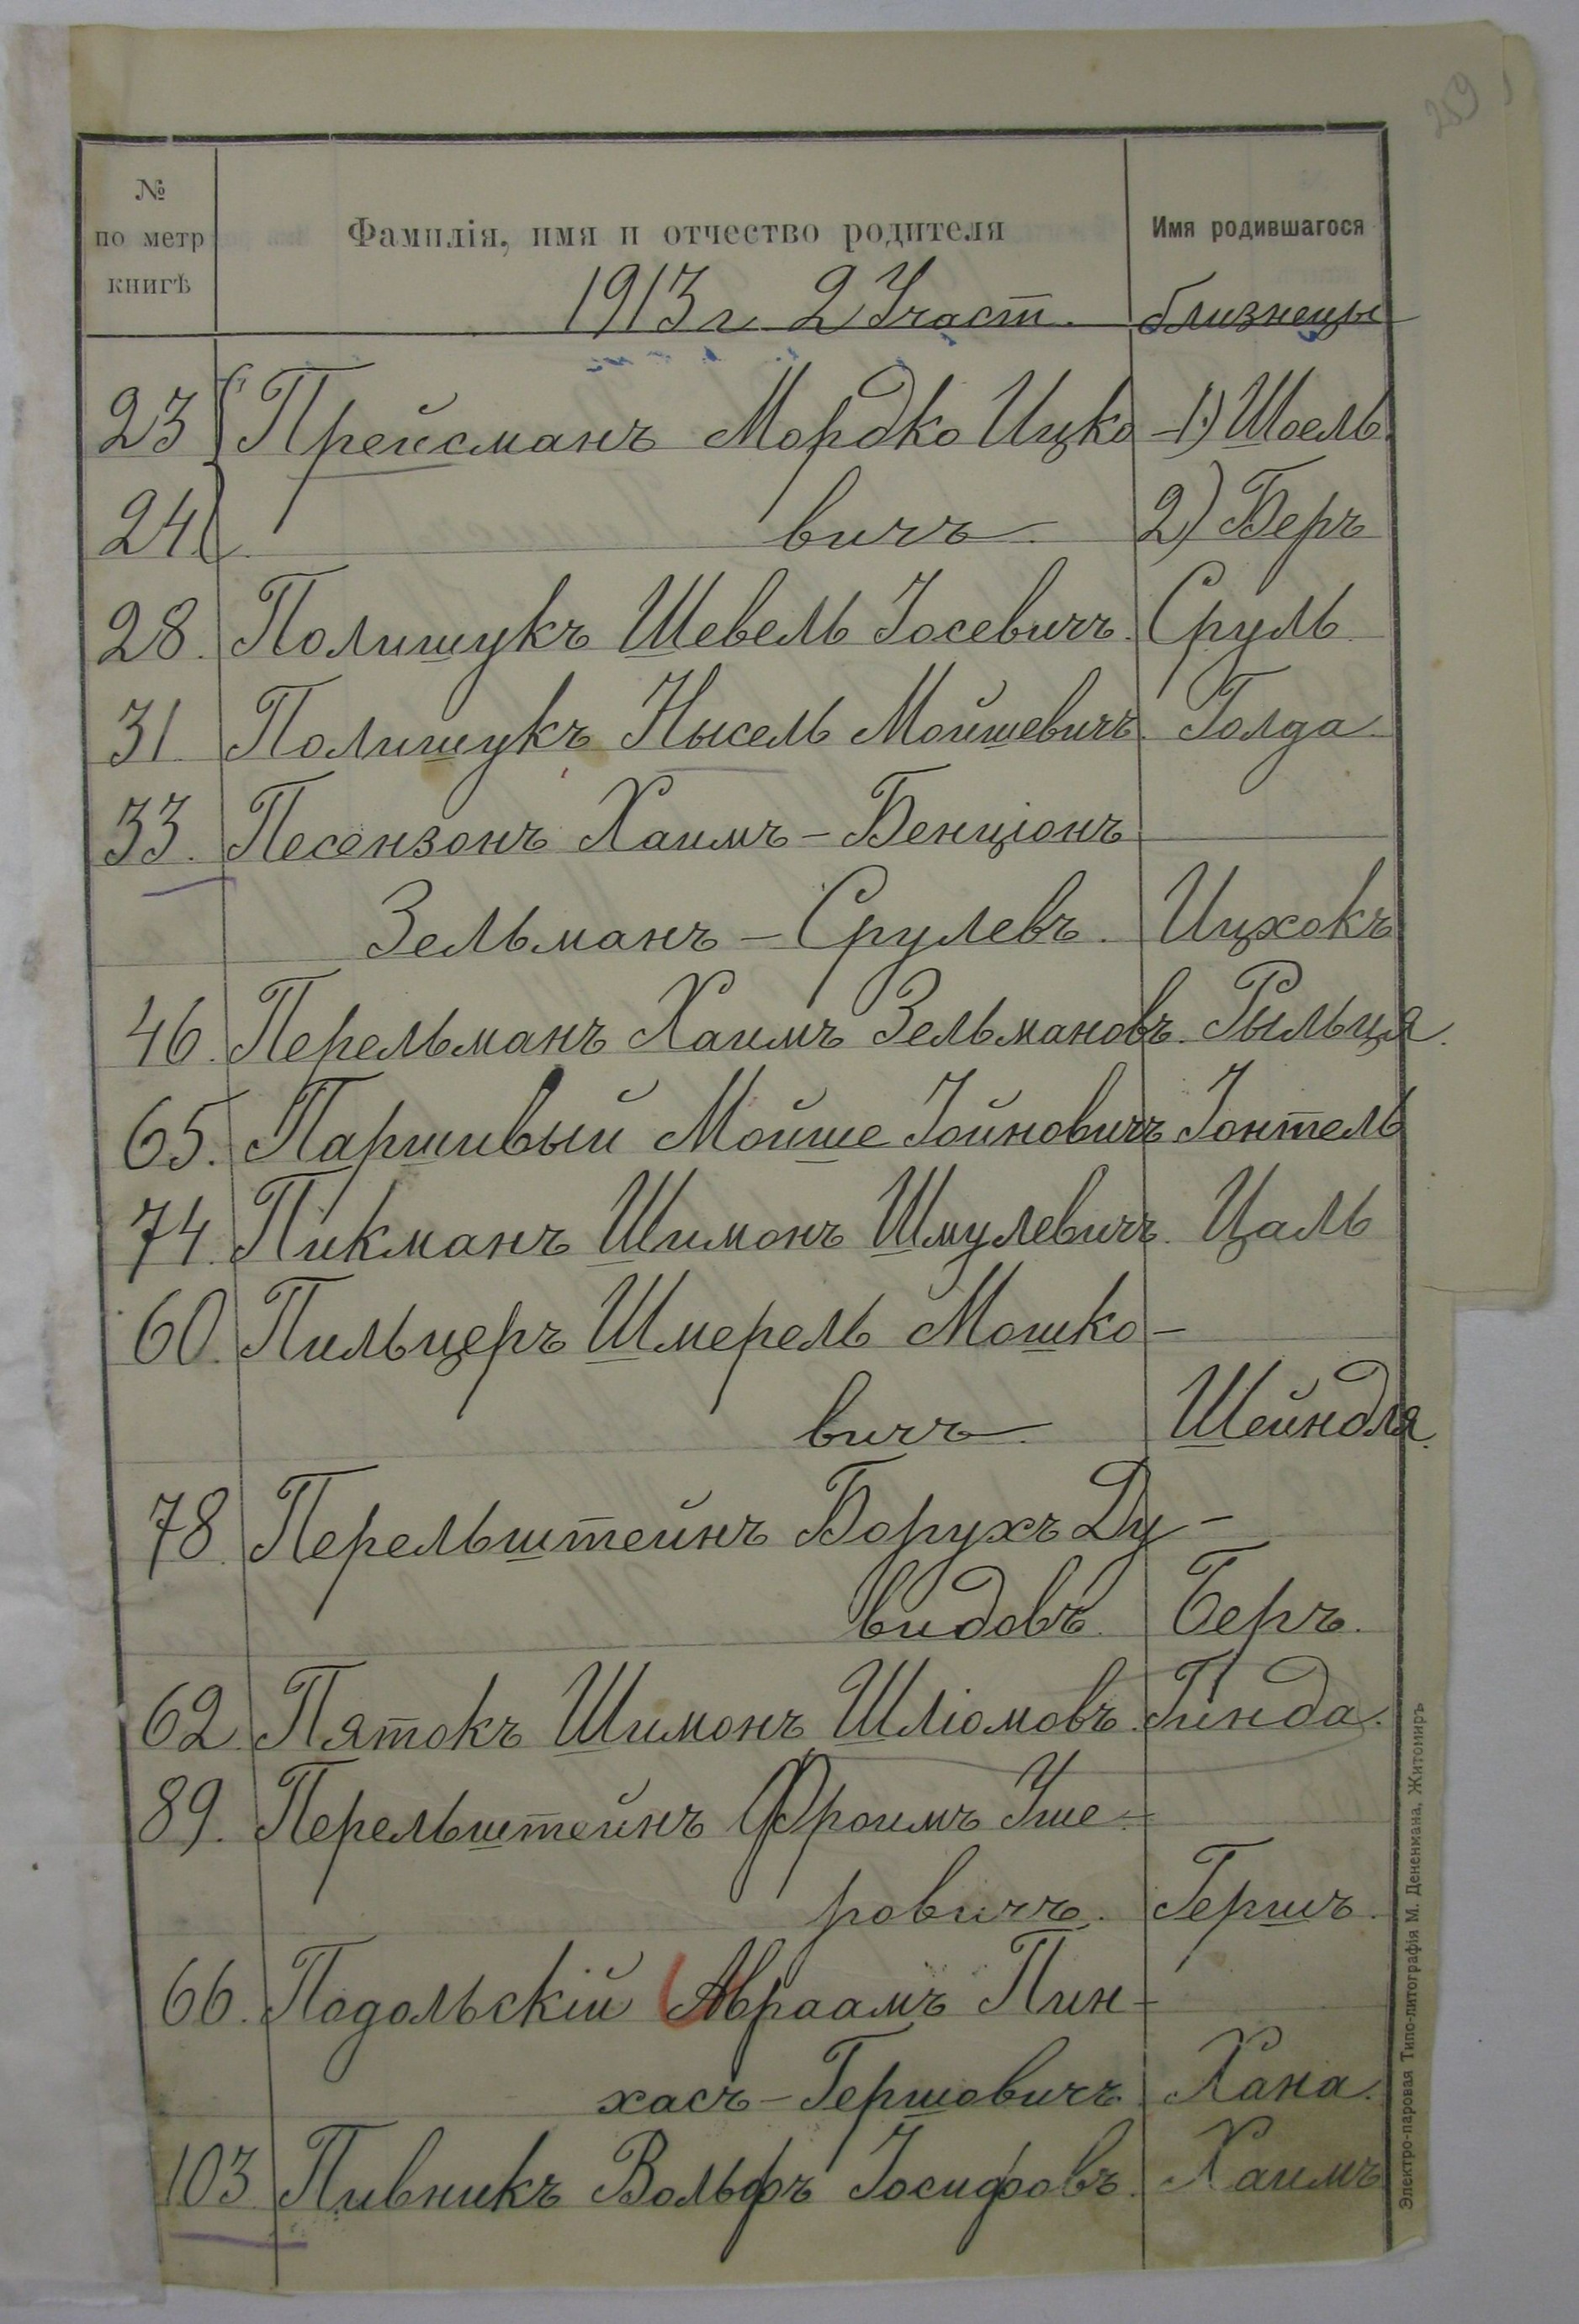 259
№ по метр книгѣ
Фамилія, имя и отчество родителя
Имя родившагося
1913 г. 2 Участ. близнецы
23 Прейсманъ Мордко Ицко- 1) Шоель
24 вичъ. 2) Беръ
28. Полишукъ Шевель Іосевичъ. Сруль
31 Полишукъ Нысель Мойшевичъ. Голда
33. Песензонъ Хаимъ-Бенціонъ
Зельманъ-Срулевъ. Ицхокъ
46. Перельманъ Хаимъ Зельмановъ. Рыльця.
65. Паршивый Мойше Іойновичъ Іонтель
74. Пикманъ Шимонъ Шмулевичъ. Цаль
60. Пильцеръ Шмерель Мошко-
вичъ. Шейндля.
78. Перельштейнъ Борухъ Ду-
видовъ. Беръ.
62. Пятокъ Шимонъ Шліомовъ. Гинда.
89. Перельштейнъ Фроимъ Уше-
ровичъ. Гершъ.
66. Подольскій Авраамъ Пин-
хасъ-Гершовичъ. Хана.
103 Пивникъ Вольфъ Іосифовъ. Хаимъ
Электро-паровая Типо-литографія М. Дененмана, Житомиръ